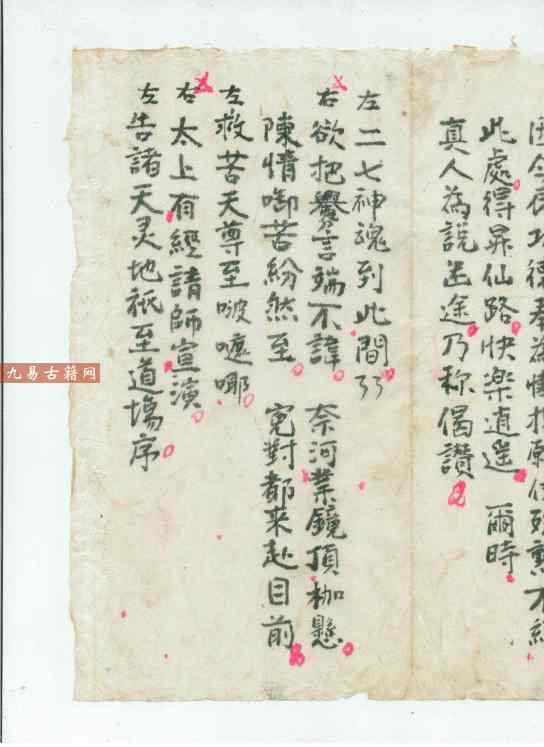 此處得昇仙路快樂逍遥 爾時
真人為說逆途乃称偈讚
左二七神魂到此間
右欲把釁言端不諱 奈河業鏡頂枷懸
陳情啣苦紛然至 寃對都来赴目前
左救苦天尊至啵嚧哪
右太上有經請師宣演
左告諸天灵地祇至道塲序
九易古籍网